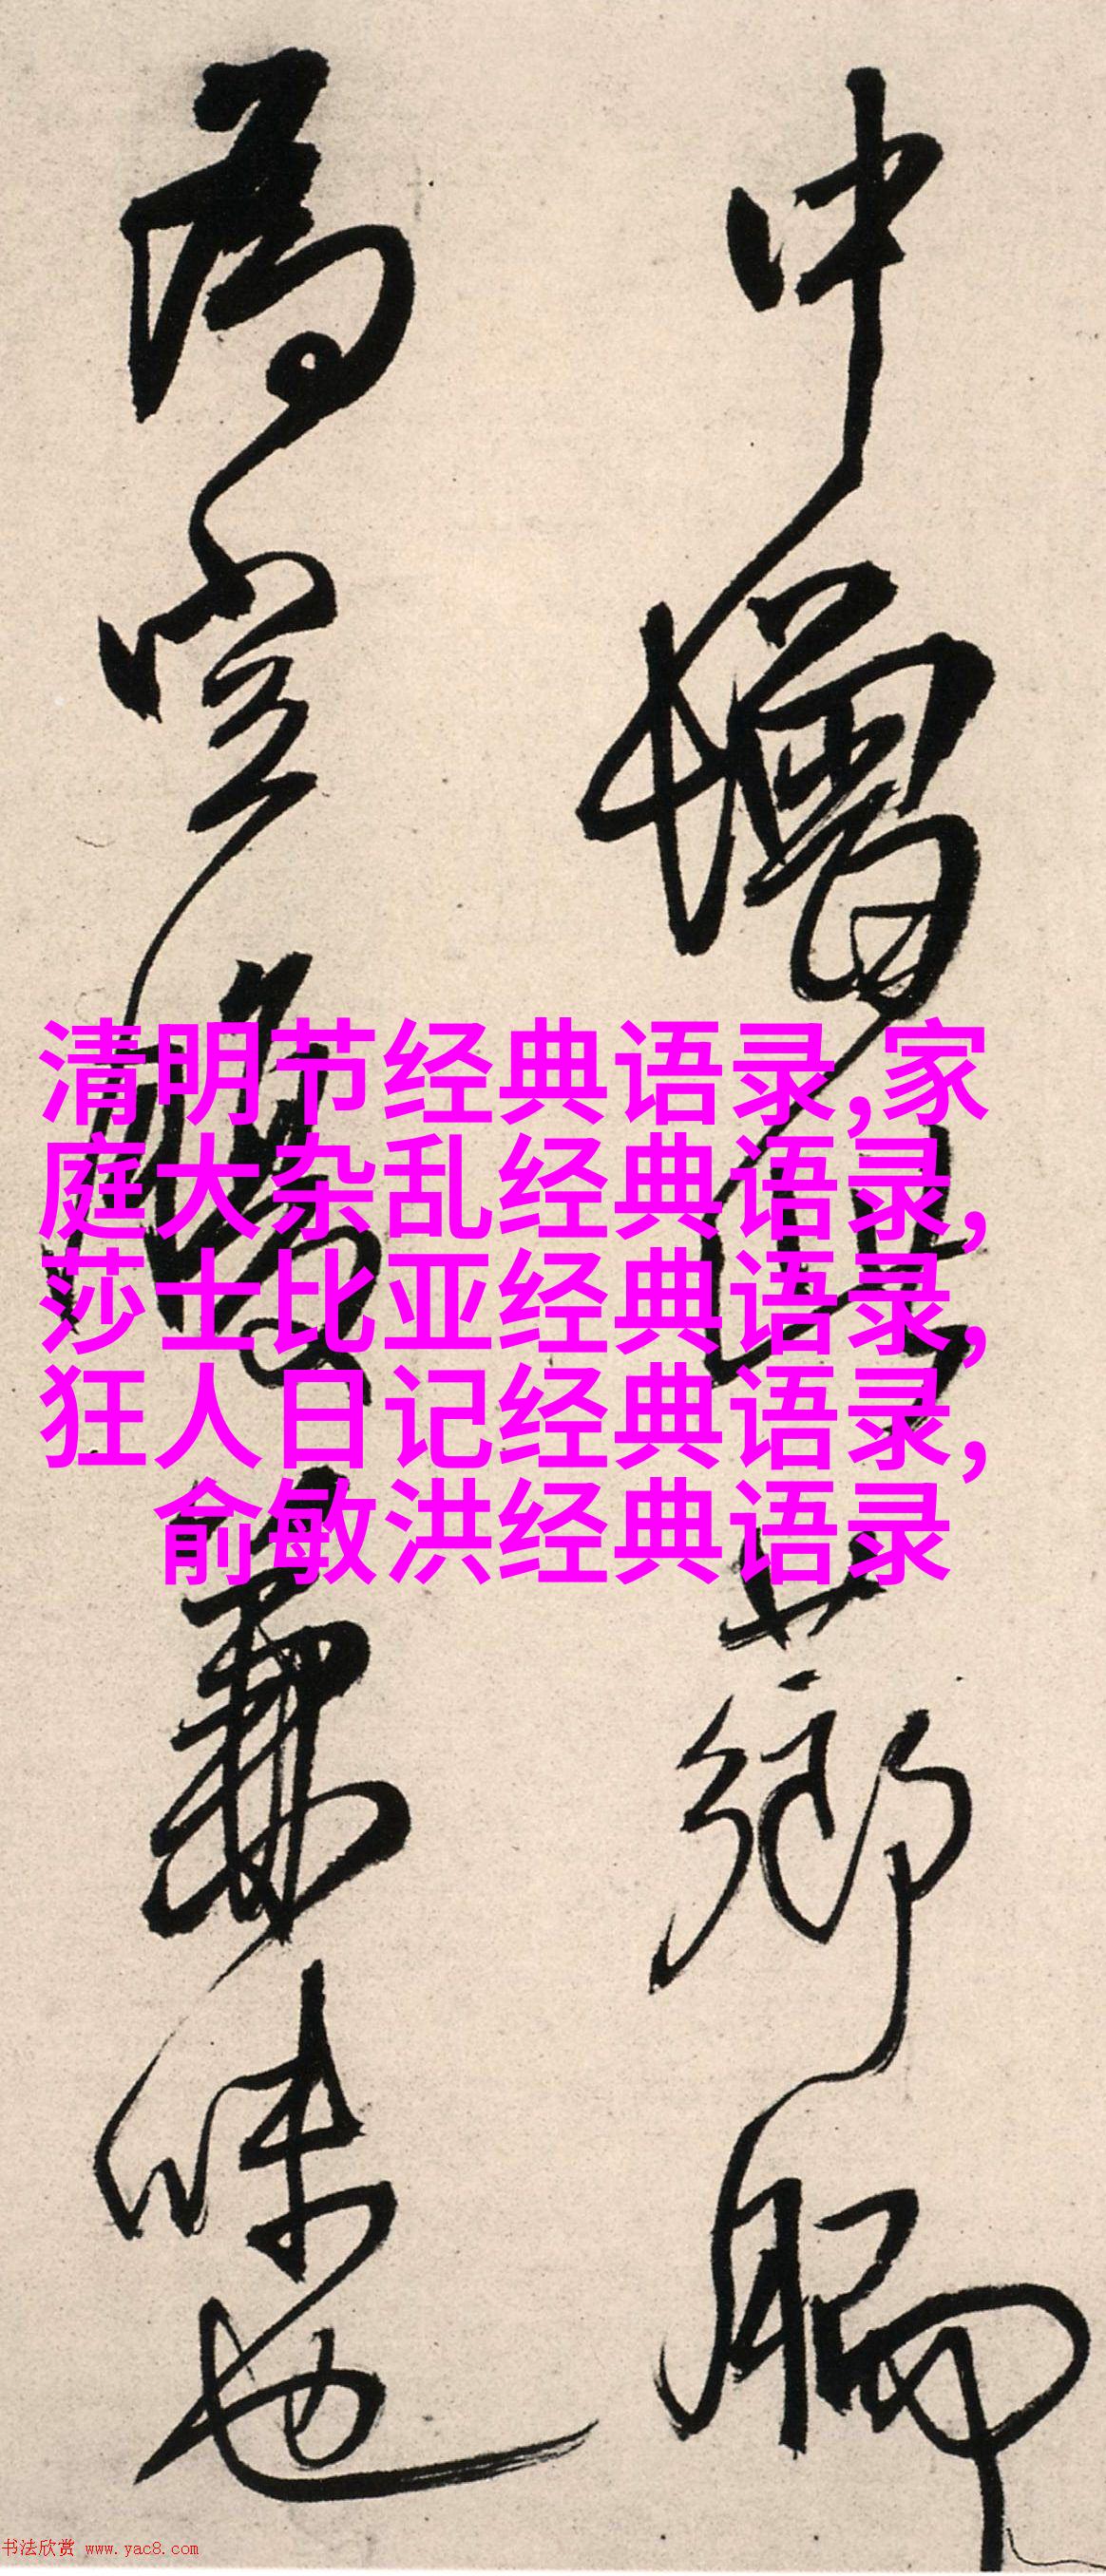 中增
鄉
為
味也
清明节经典语录,家
庭大杂乱经典语录,
莎士比亚经典语录,
狂人日记经典语录,
俞敏洪经典语录
书法欣赏 www.yac8.com